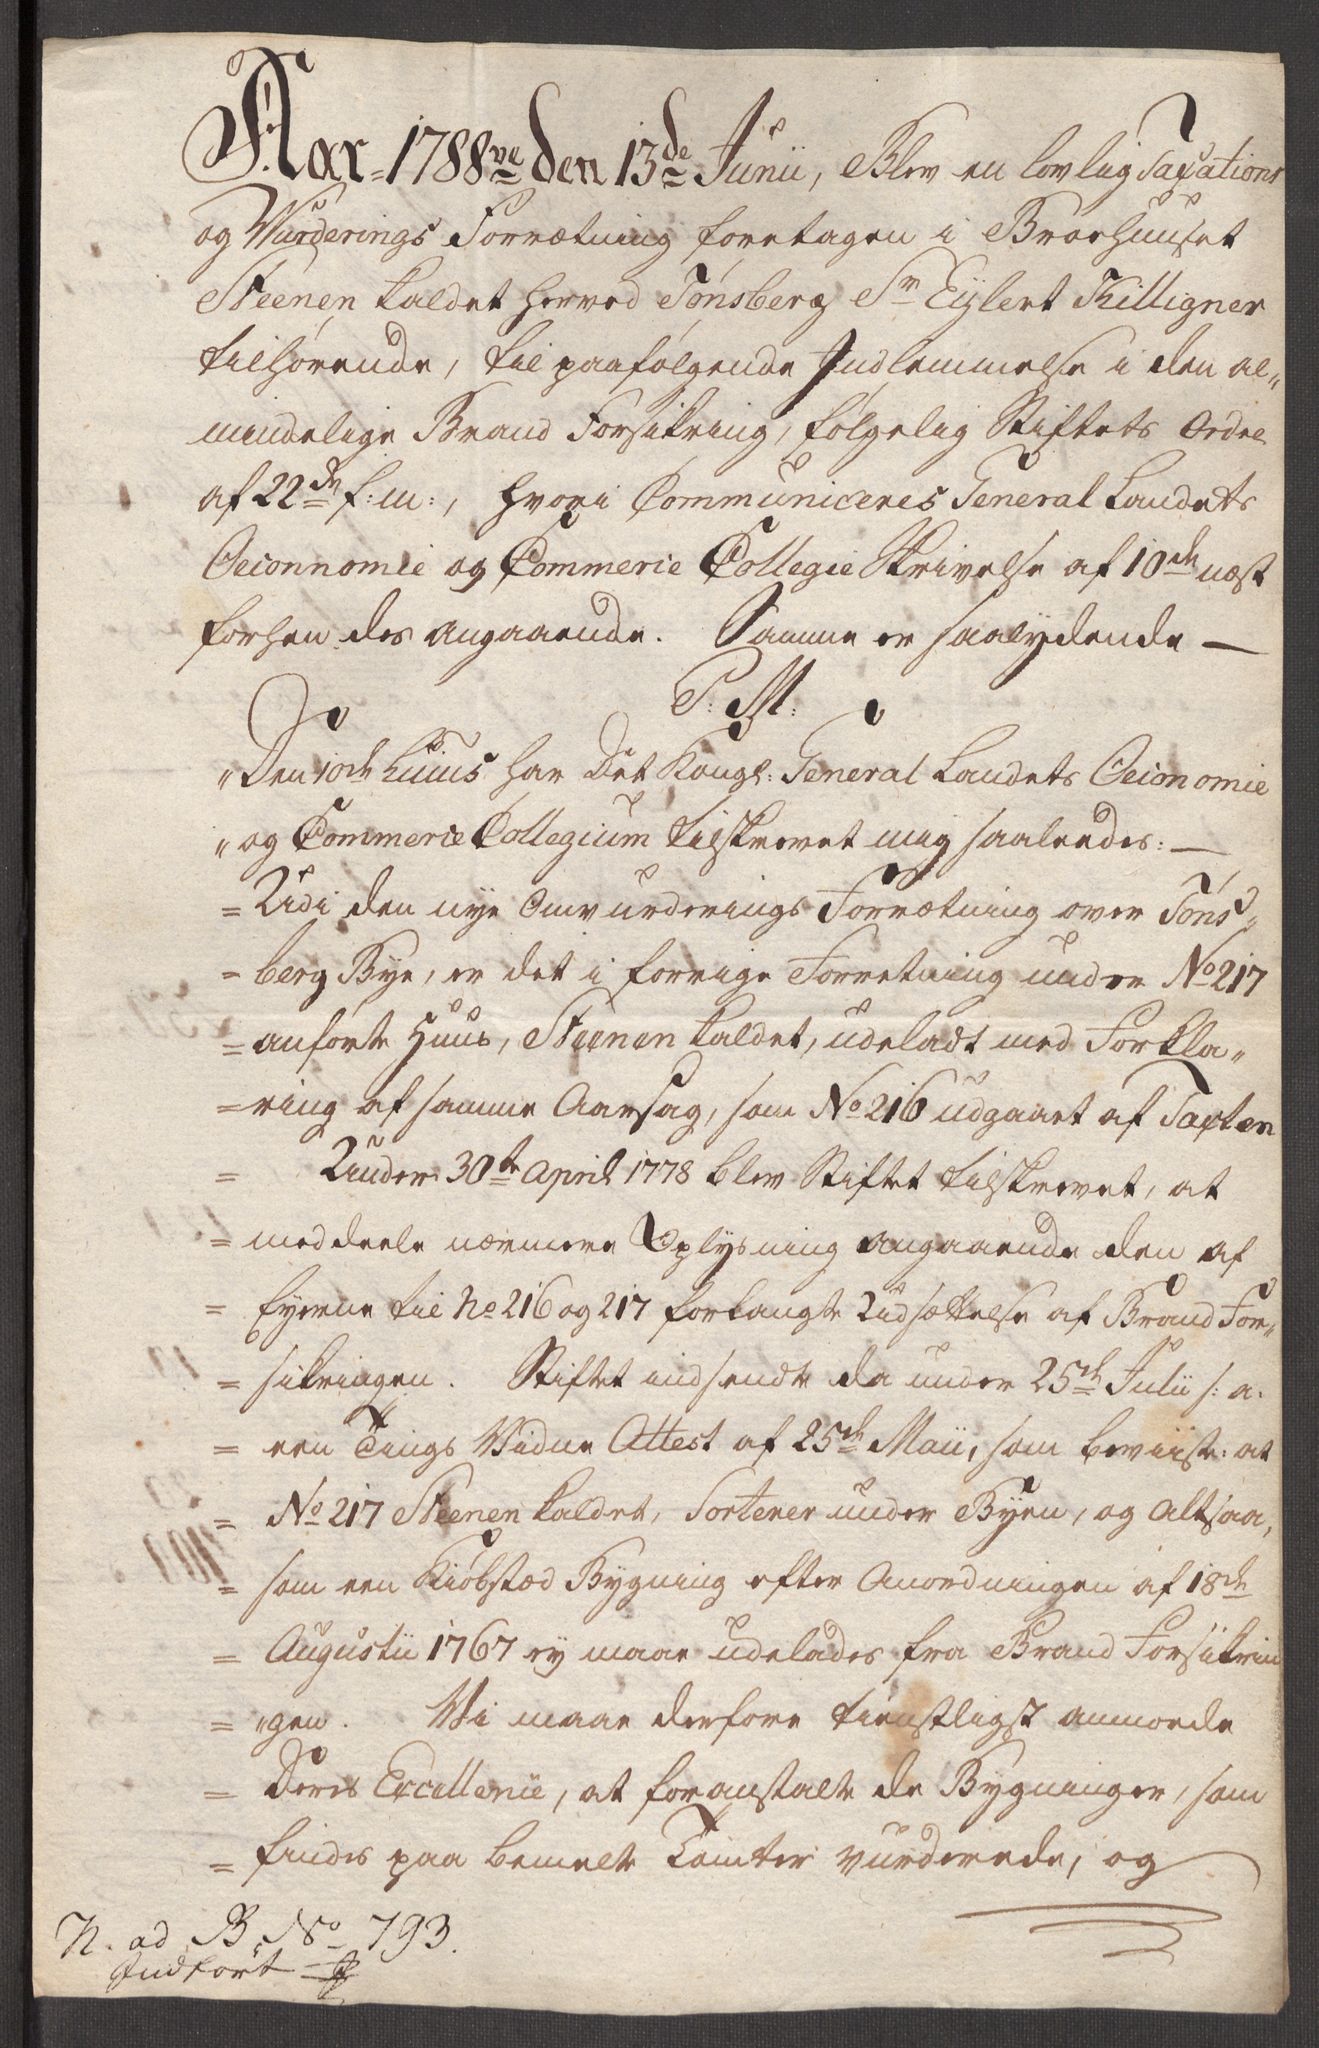 Aar 1788ve den 13de Junii, Blev en lovlig Taxations
og Vurderings Forretning foretagen i Broehuuset
Steenen kaldet herved Tönsberg Sr Eylert Killigner
tilhørende, til paafølgende Indlemmelse i den al„
mindelige Brand Forsikring, følgelig Stiftets Ordre
af 22de f: m:, hvori Communiceres General Landets
Oeconnomie og Commerce Collegie Skrivelse af 10de næst
forhen des angaaende. Samme er saalydende —
P: M:
„Den 10de huius har Det Kongl: General Landets Oeconomie
„og Commerce Collegium tilskrevet mig saaledes: —
= Udi den nye Omvurderings Forretning over Töns„
= berg Bye, er det i forrige Forretning under No 217
= anførte Huus, Steenen kaldet, udeladt med Forkla„
= ring af samme Aarsag, som No 216 udgaaet af Taxten
= Under 30te April 1778 blev Stiftet tilskrevet, at
= meddeele nærmere Oplysning angaaende den af
= Eyerne til No 216 og 217 forlangte Udsættelse af Brand For„
= sikringen. Stiftet indsendte da under 25de Julii s: a:
= een Tings Vidne Attest af 25de Maii, som beviiste: at
= No 217 Steenen kaldet, Sorterer under Byen, og altsaa,
= som een Kiöbstæd Bygning efter Anordningen af 18de
= Augustii 1767 ey maae udelades fra Brand Forsikrin
= „gen. Vi maae derfore tienstligst anmode
= Deres Excellence, at foranstalte de Bygninger, som
= findes paa bemelte Tomter vurderede, og
N. ad B. No 793.
Indført